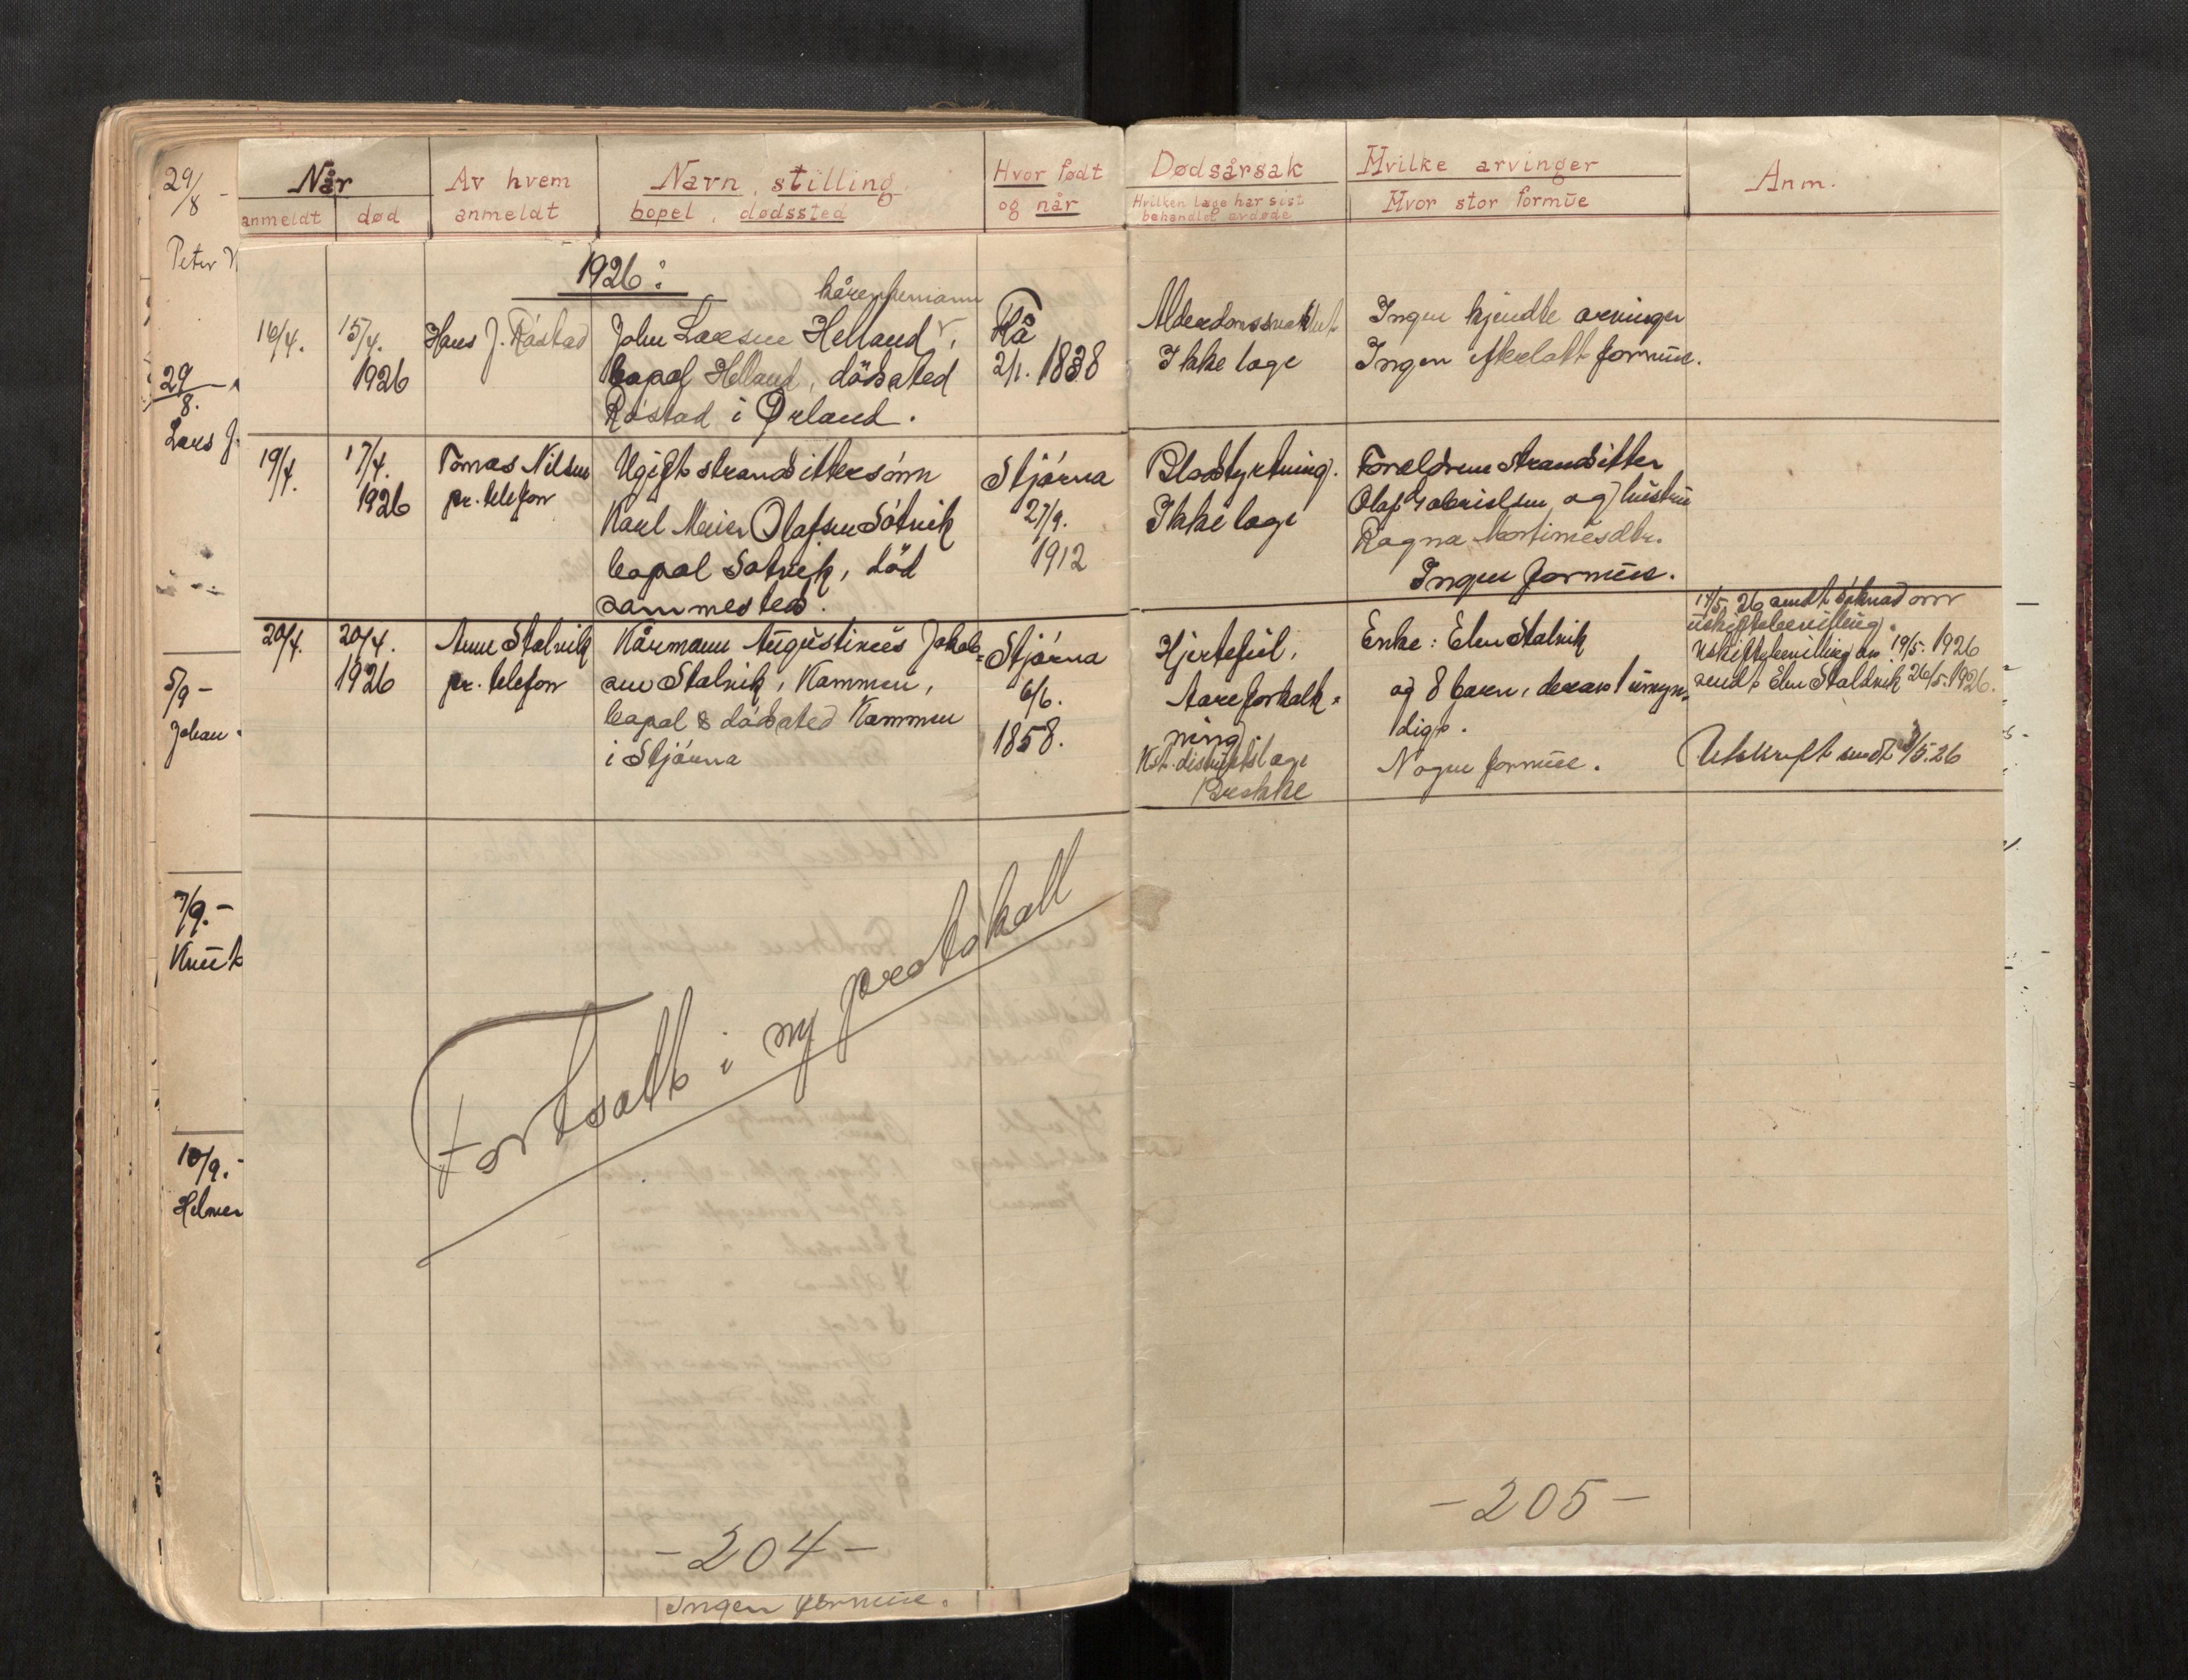 29/8 -
Peter
29/8. -
Lars J.
5/9 -
Johan
7/9. -
Knut
10/9. -
Helmer
Når
anmeldt død
Av hvem
anmeldt
Navn, stilling,
bopel, dødssted
Hvor født
og når
Dødsårsak
Hvilken læge har sist
behandlet avdøde
Hvilke arvinger
Hvor stor formue
Anm.
1926:
16/4.
15/4.
1926
Hans J. Råstad
John Larsen Helland,
bopæl Helland, dödssted
Råstad i Ørland.
Rå
2/1. 1838
Alderdomssvakhet
Ikke læge
Ingen kjendte arvinger
Ingen efterlatt formue.
19/4.
17/4.
1926
Tomas Nilsen
pr. telefon
Ugift strandsittersönn
Karl Meier Olafsen Sötvik
bopæl Sötvik, död
sammesteds.
Stjörna
27/9.
1912
Blodstyrtning.
Ikke læge
Forældrene strandsitter
Olaf Gabrielsen og hustru
Ragna Mortimesdtr.
Ingen formue.
20/4.
20/4.
1926
Anne Stalvik
pr. telefon
Kårmann Augustinus Jakob-
sen Stalvik, Kammen,
bopæl & dödssted Kammen
i Stjörna
Stjörna
6/6.
1858.
Hjertefeil,
Aareforkalk-
ning.
Kst. distriktslæge
Brekke
Enke: Elen Stalvik
og 8 barn, derav 1 umyn-
dige.
Nogen formue.
14/5. 26 sendt söknad om
uskiftebevilling.
Uskiftebevilling av 19/5. 1926
sendt Elen Staldvik 26/5. 1926.
Utskrift sendt /5.26
Fortsatt i ny protokoll
- 204 -
- 205 -
Ingen formue.